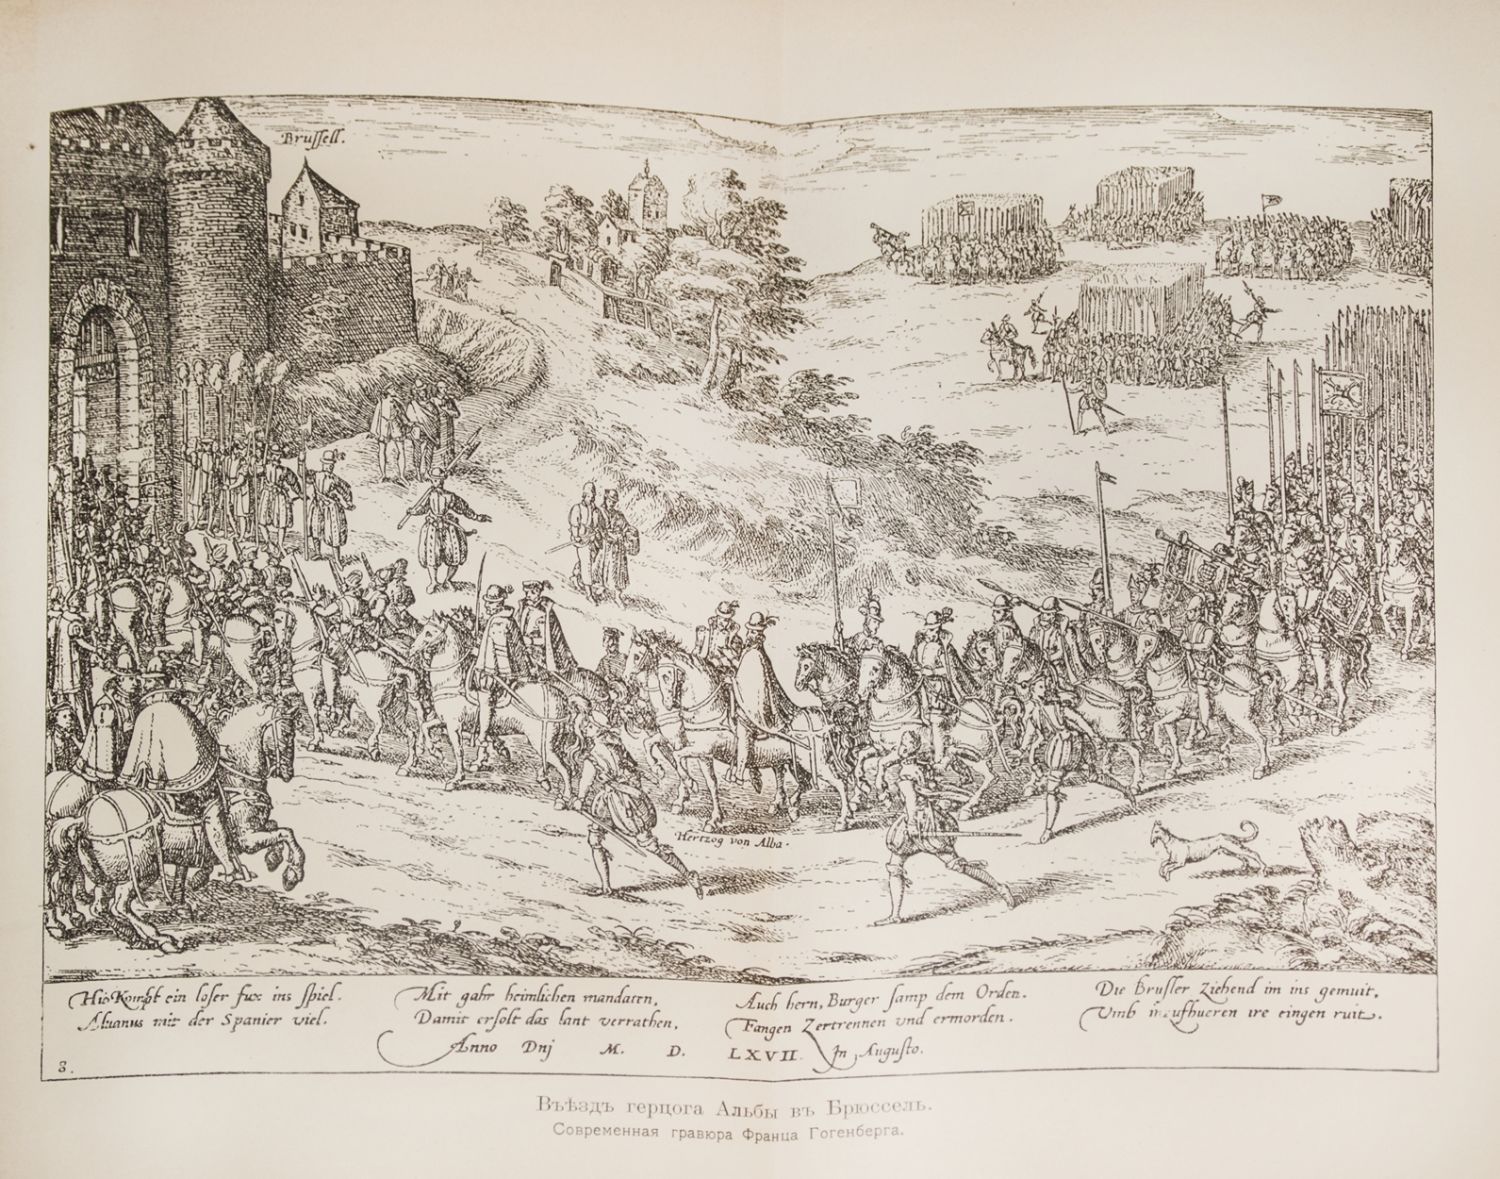 Brussell.
Hertzog von Alba.
Hie Kompt ein loser fux ins spiel.
Aluanus mit der Spanier viel.
Mit gahr heimlichen mandaten,
Damit er solt das lant verrathen,
Auch hern, Burger samp dem Orden.
Fangen Zertrennen und ermorden.
Die Brusler Ziehend im ins gemuit,
Umb ire eingen ruit.
Anno Dnj M. D. LXVII. In Augusto.
8.
Въѣздъ герцога Альбы въ Брюссель.
Современная гравюра Франца Гогенберга.